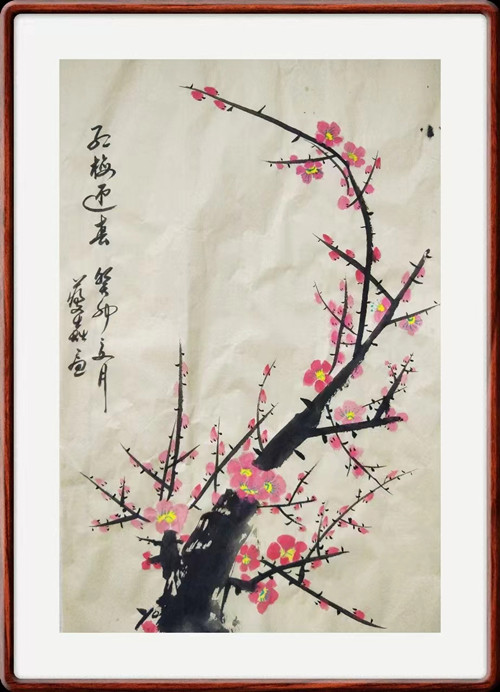 红梅迎春 癸卯五月
画